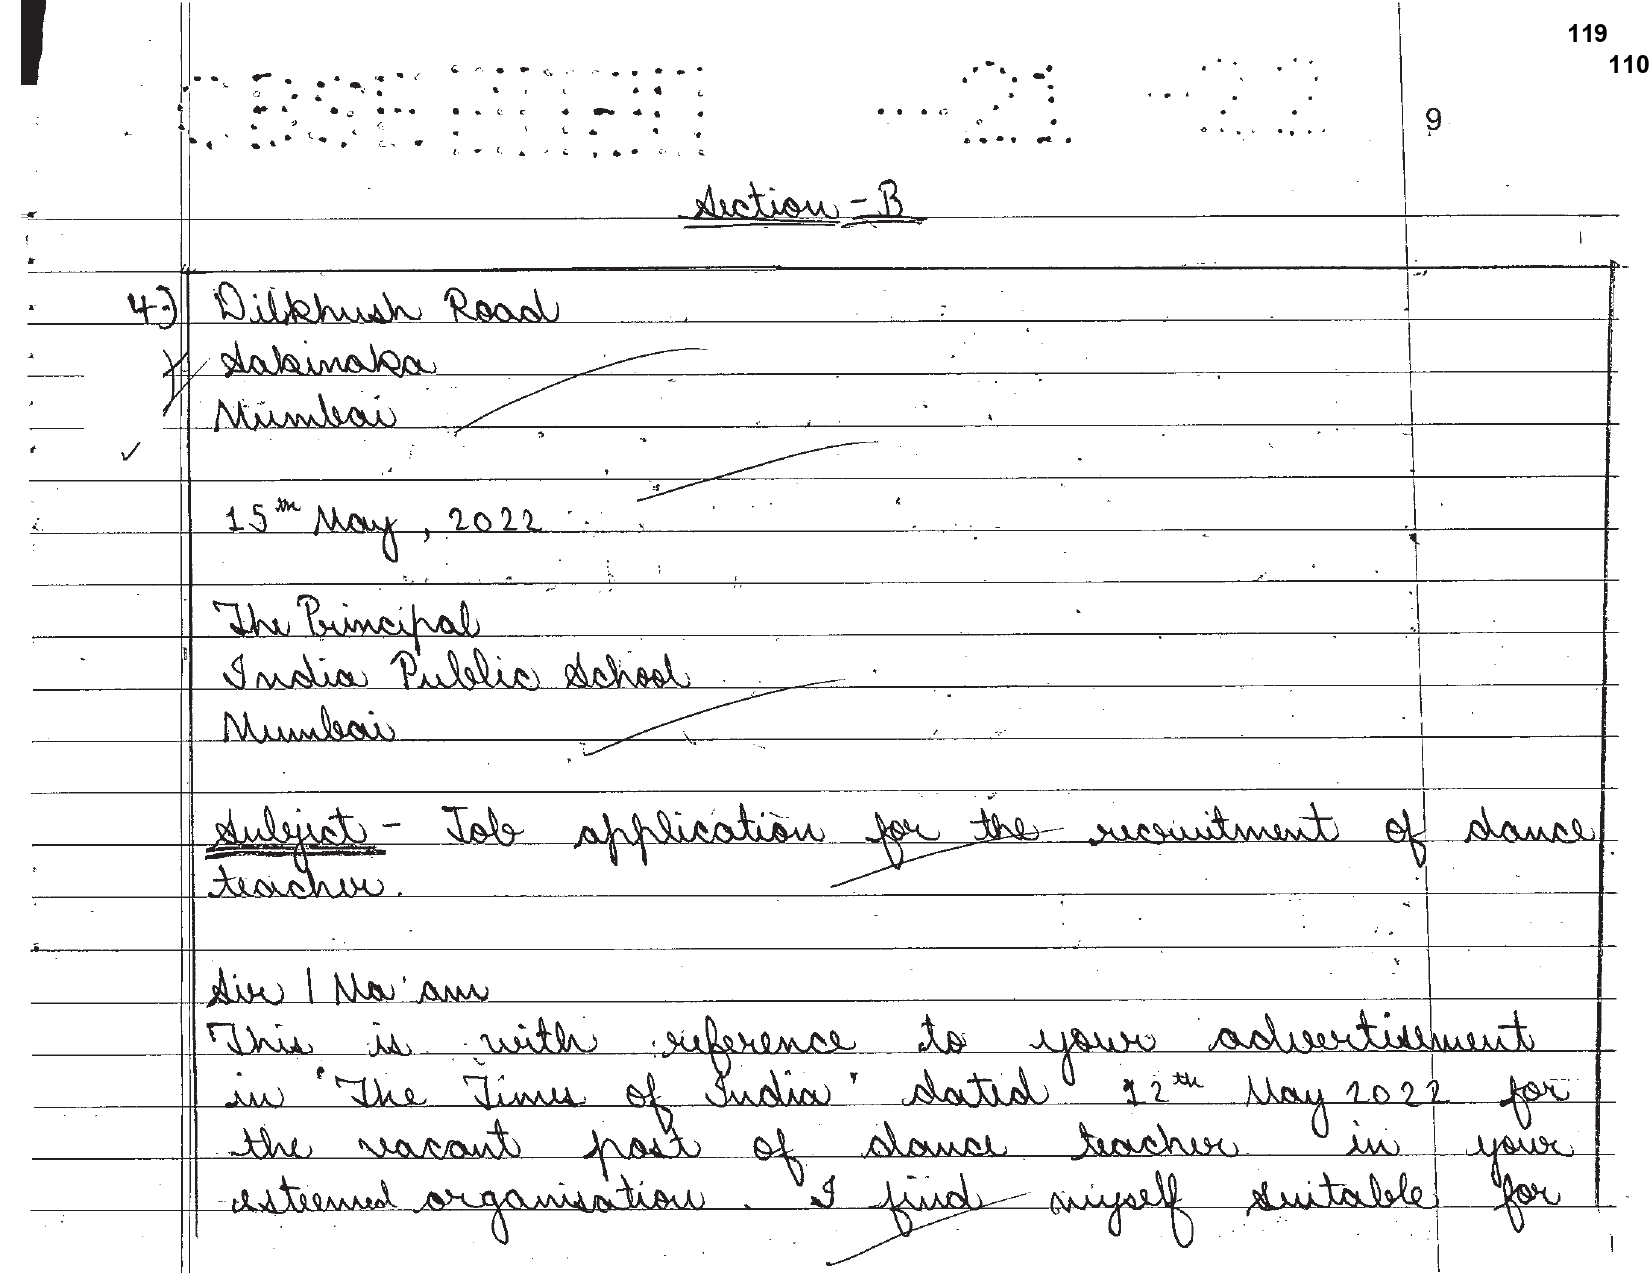 119
110
CBSE
-21 -22
9
Section - B
4.) Dilkhush Road
Sakinaka
Mumbai
15th May, 2022
The Principal
India Public School
Mumbai
Subject - Job application for the recruitment of dance
teacher.
Sir / Ma'am
This is with reference to your advertisement
in 'The Times of India' dated 12th May 2022 for
the vacant post of dance teacher in your
esteemed organisation. I find myself suitable for